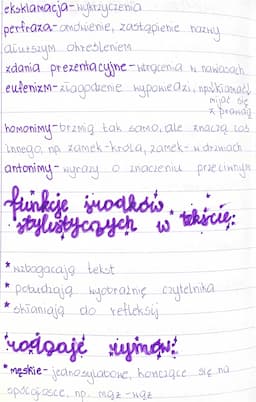 eksklamacja-wykrzyczenia
perfraza-omówienie, zastąpienie nazwy
dłuższym określeniem
zdania prezentacyjne-wtrącenia w nawiasach
eufenizm-złagodzenie wypowiedzi, np.
mijać się
z prawdą
homonimy-brzmią tak samo, ale znaczą coś
innego, np. zamek-króla, zamek-w drzwiach
antonimy-wyrazy o znaczeniu przeciwnym
funkcje środków
stylistycznych w tekście:
* wzbogacają tekst
* pobudzają wyobraźnię czytelnika
* skłaniają do refleksji
rodzaje rymów:
* męskie-jednosylabowe, kończące się na
spółgłosce, np. mąż-wąż